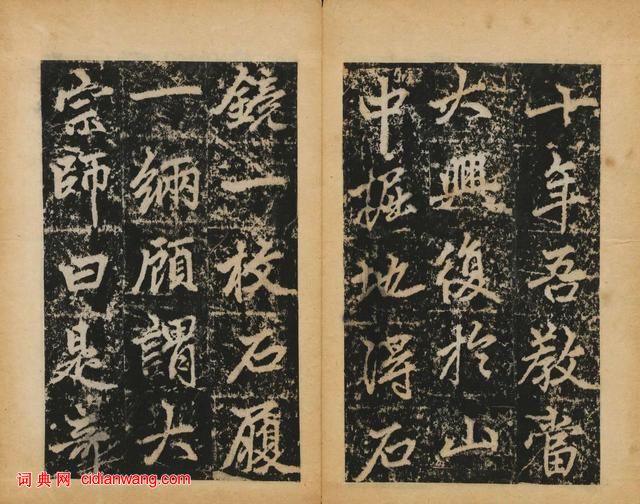 十年吾教當
大興復於山
中掘地得石
鏡一枚石履
一緉顧謂大
宗師曰是音
词典网 cidianwang.com